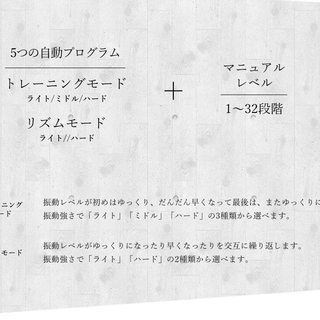 5つの自動プログラム
トレーニングモード
ライト/ミドル/ハード
リズムモード
ライト//ハード
＋
マニュアル
レベル
1〜32段階
ニング
ード
振動レベルが初めはゆっくり、だんだん早くなって最後は、またゆっくりに
振動強さで「ライト」「ミドル」「ハード」の3種類から選べます。
モード
振動レベルがゆっくりになったり早くなったりを交互に繰り返します。
振動強さで「ライト」「ハード」の2種類から選べます。